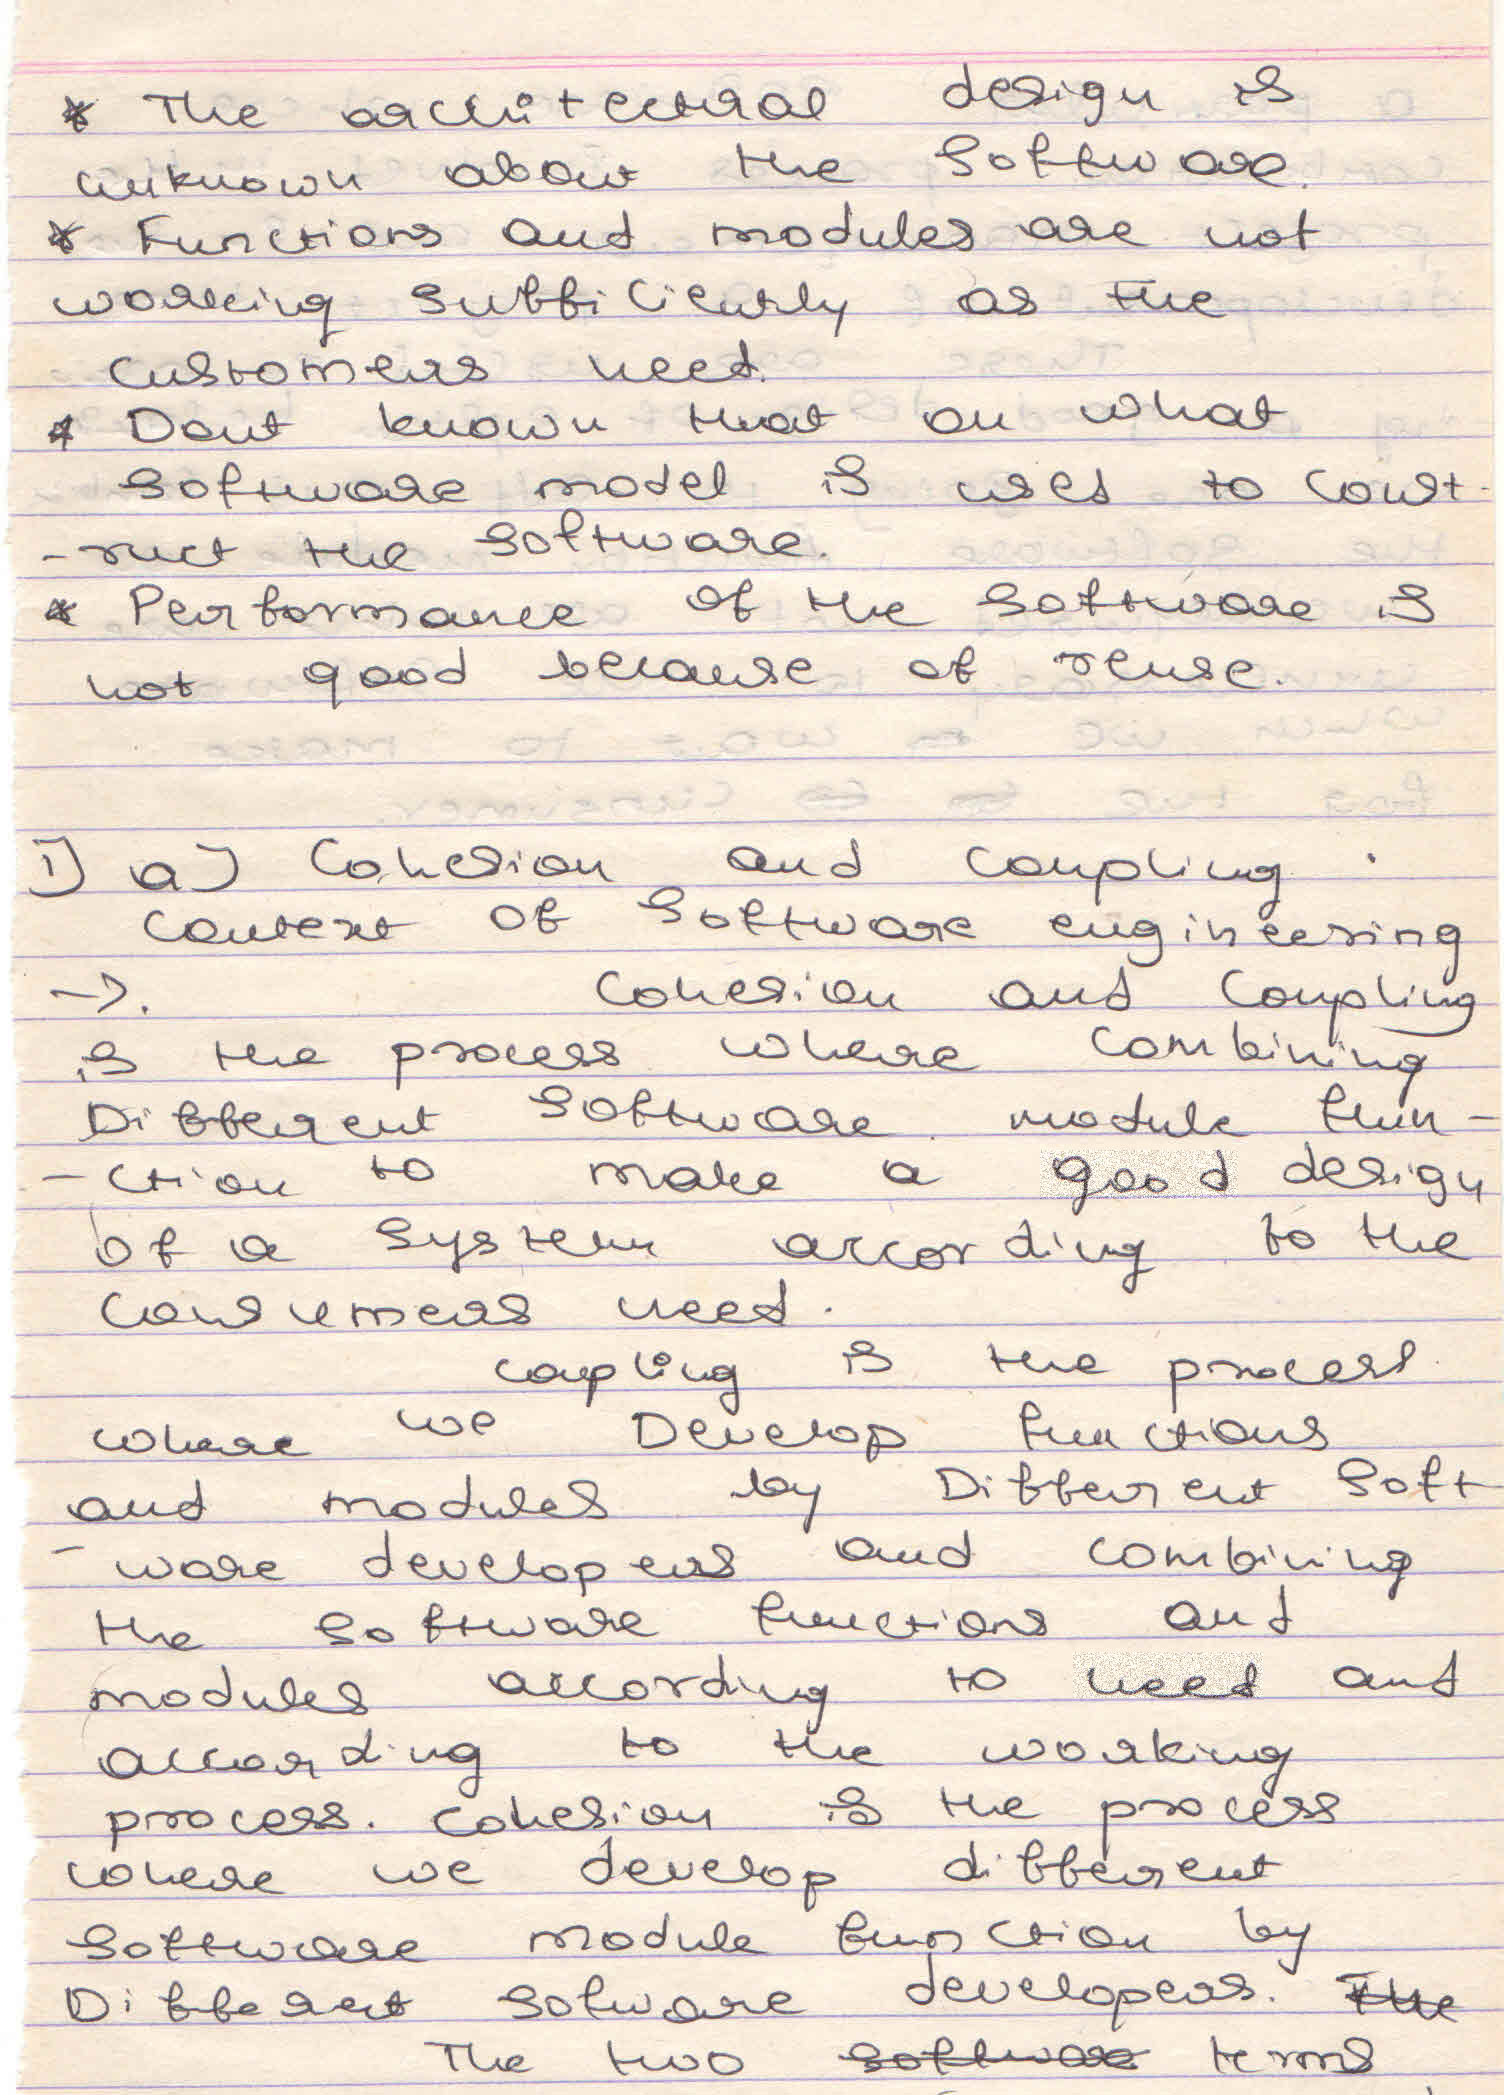 * The architectural design is
unknown about the Software.
* Functions and modules are not
working sufficiently as the
customers need.
* Dont known that on what
software model is used to const-
-ruct the software.
* Performance of the software is
not good because of reuse.
1) a) Cohesion and coupling.
context of software engineering
→. Cohesion and coupling
is the process where combining
Different software module fun-
-ction to make a good design
of a system according to the
consumers need.
coupling is the process
where we Develop functions
and modules by Different soft
-ware developers and combining
the software functions and
modules according to need and
according to the working
process. cohesion is the process
where we develop different
software module function by
Different sofware developers. The
The two software terms